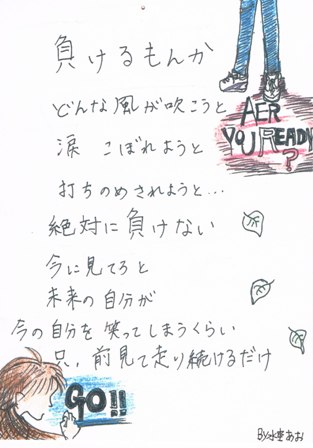 負けるもんか
どんな風が吹こうと
AER
YOU READY
?
涙 こぼれようと
打ちのめされようと…
絶対に負けない
今に見てろと
未来の自分が
今の自分を笑ってしまうくらい
只、前見て走り続けるだけ
GO!!